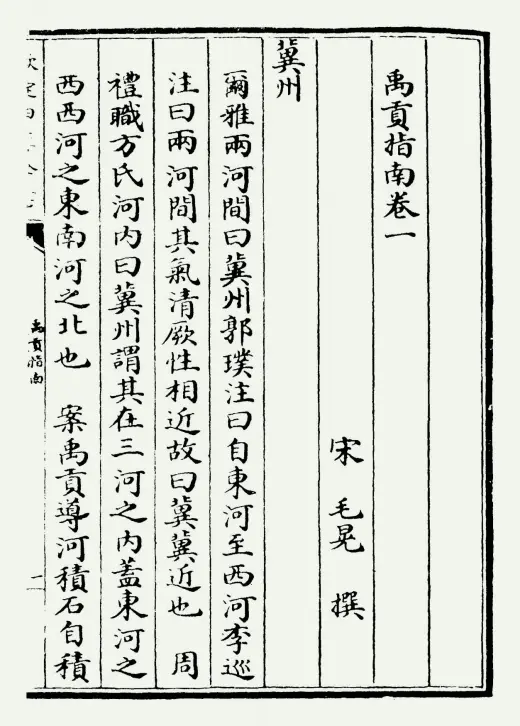 禹貢指南卷一
宋 毛晃 撰
冀州
爾雅兩河間曰冀州郭璞注曰自東河至西河李巡
注曰兩河間其氣清厥性相近故曰冀冀近也 周
禮職方氏河内曰冀州謂其在三河之内蓋東河之
西西河之東南河之北也 案禹貢導河積石自積
禹貢指南